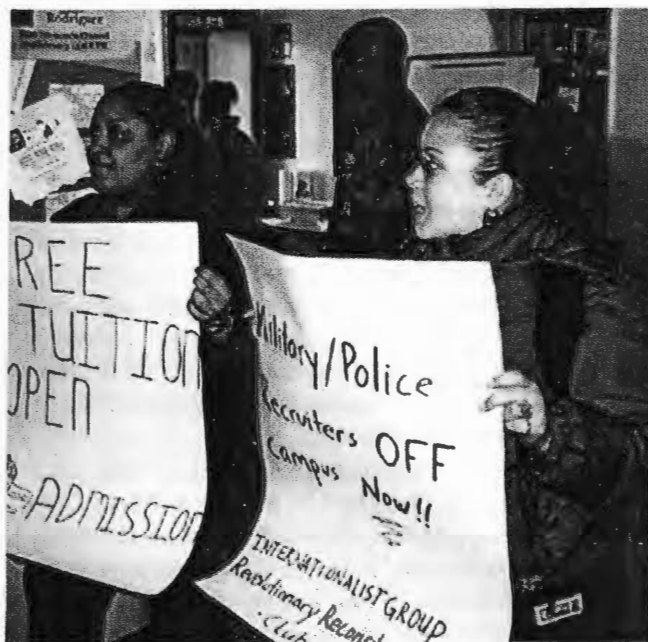 Rodriguez
REE
TUITION
OPEN
ADMISSION
Military/Police
Recruiters OFF
Campus Now!!
INTERNATIONALIST GROUP
Revolutionary
Club